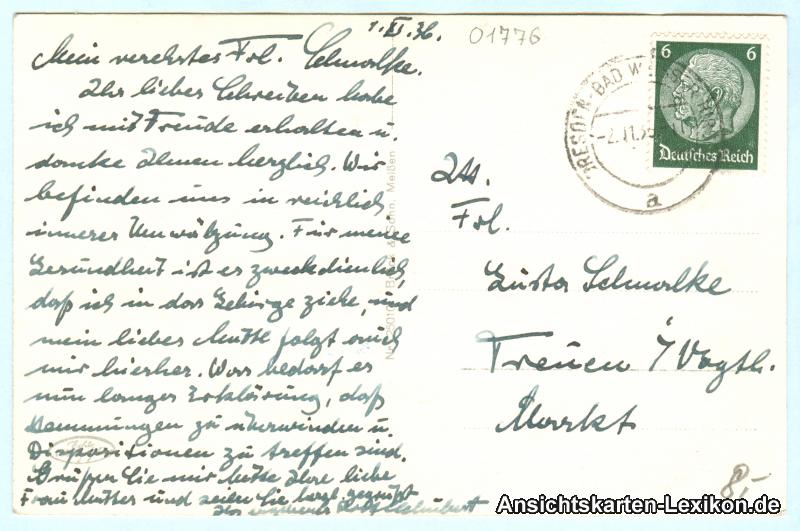 1. XI. 36.
01776
Mein verehrtes Frl. Schmalke.
Ihr liebes Schreiben habe
ich mit Freude erhalten u.
danke Ihnen herzlich. Wir
befinden uns in reichlich
innerer Umwälzung. Für meine
Gesundheit ist es zweckdienlich,
daß ich in das Gebirge ziehe, und
mein liebes Mutti folgt auch
mir hierher. Was bedarf es
nun langer Erklärung, daß
Hemmungen zu überwinden u.
Dispositionen zu treffen sind.
Grüßen Sie mir bitte Ihre liebe
Frau Mutter und seien Sie herzl. gegrüßt
Schubert
& Sohn, Meißen
DRESDEN-BAD
-2.11.36
a
6 6
Deutsches Reich
Frl.
Gusta Schmalke
Treuen i/Vogtl.
Markt
8,-
Ansichtskarten-Lexikon.de